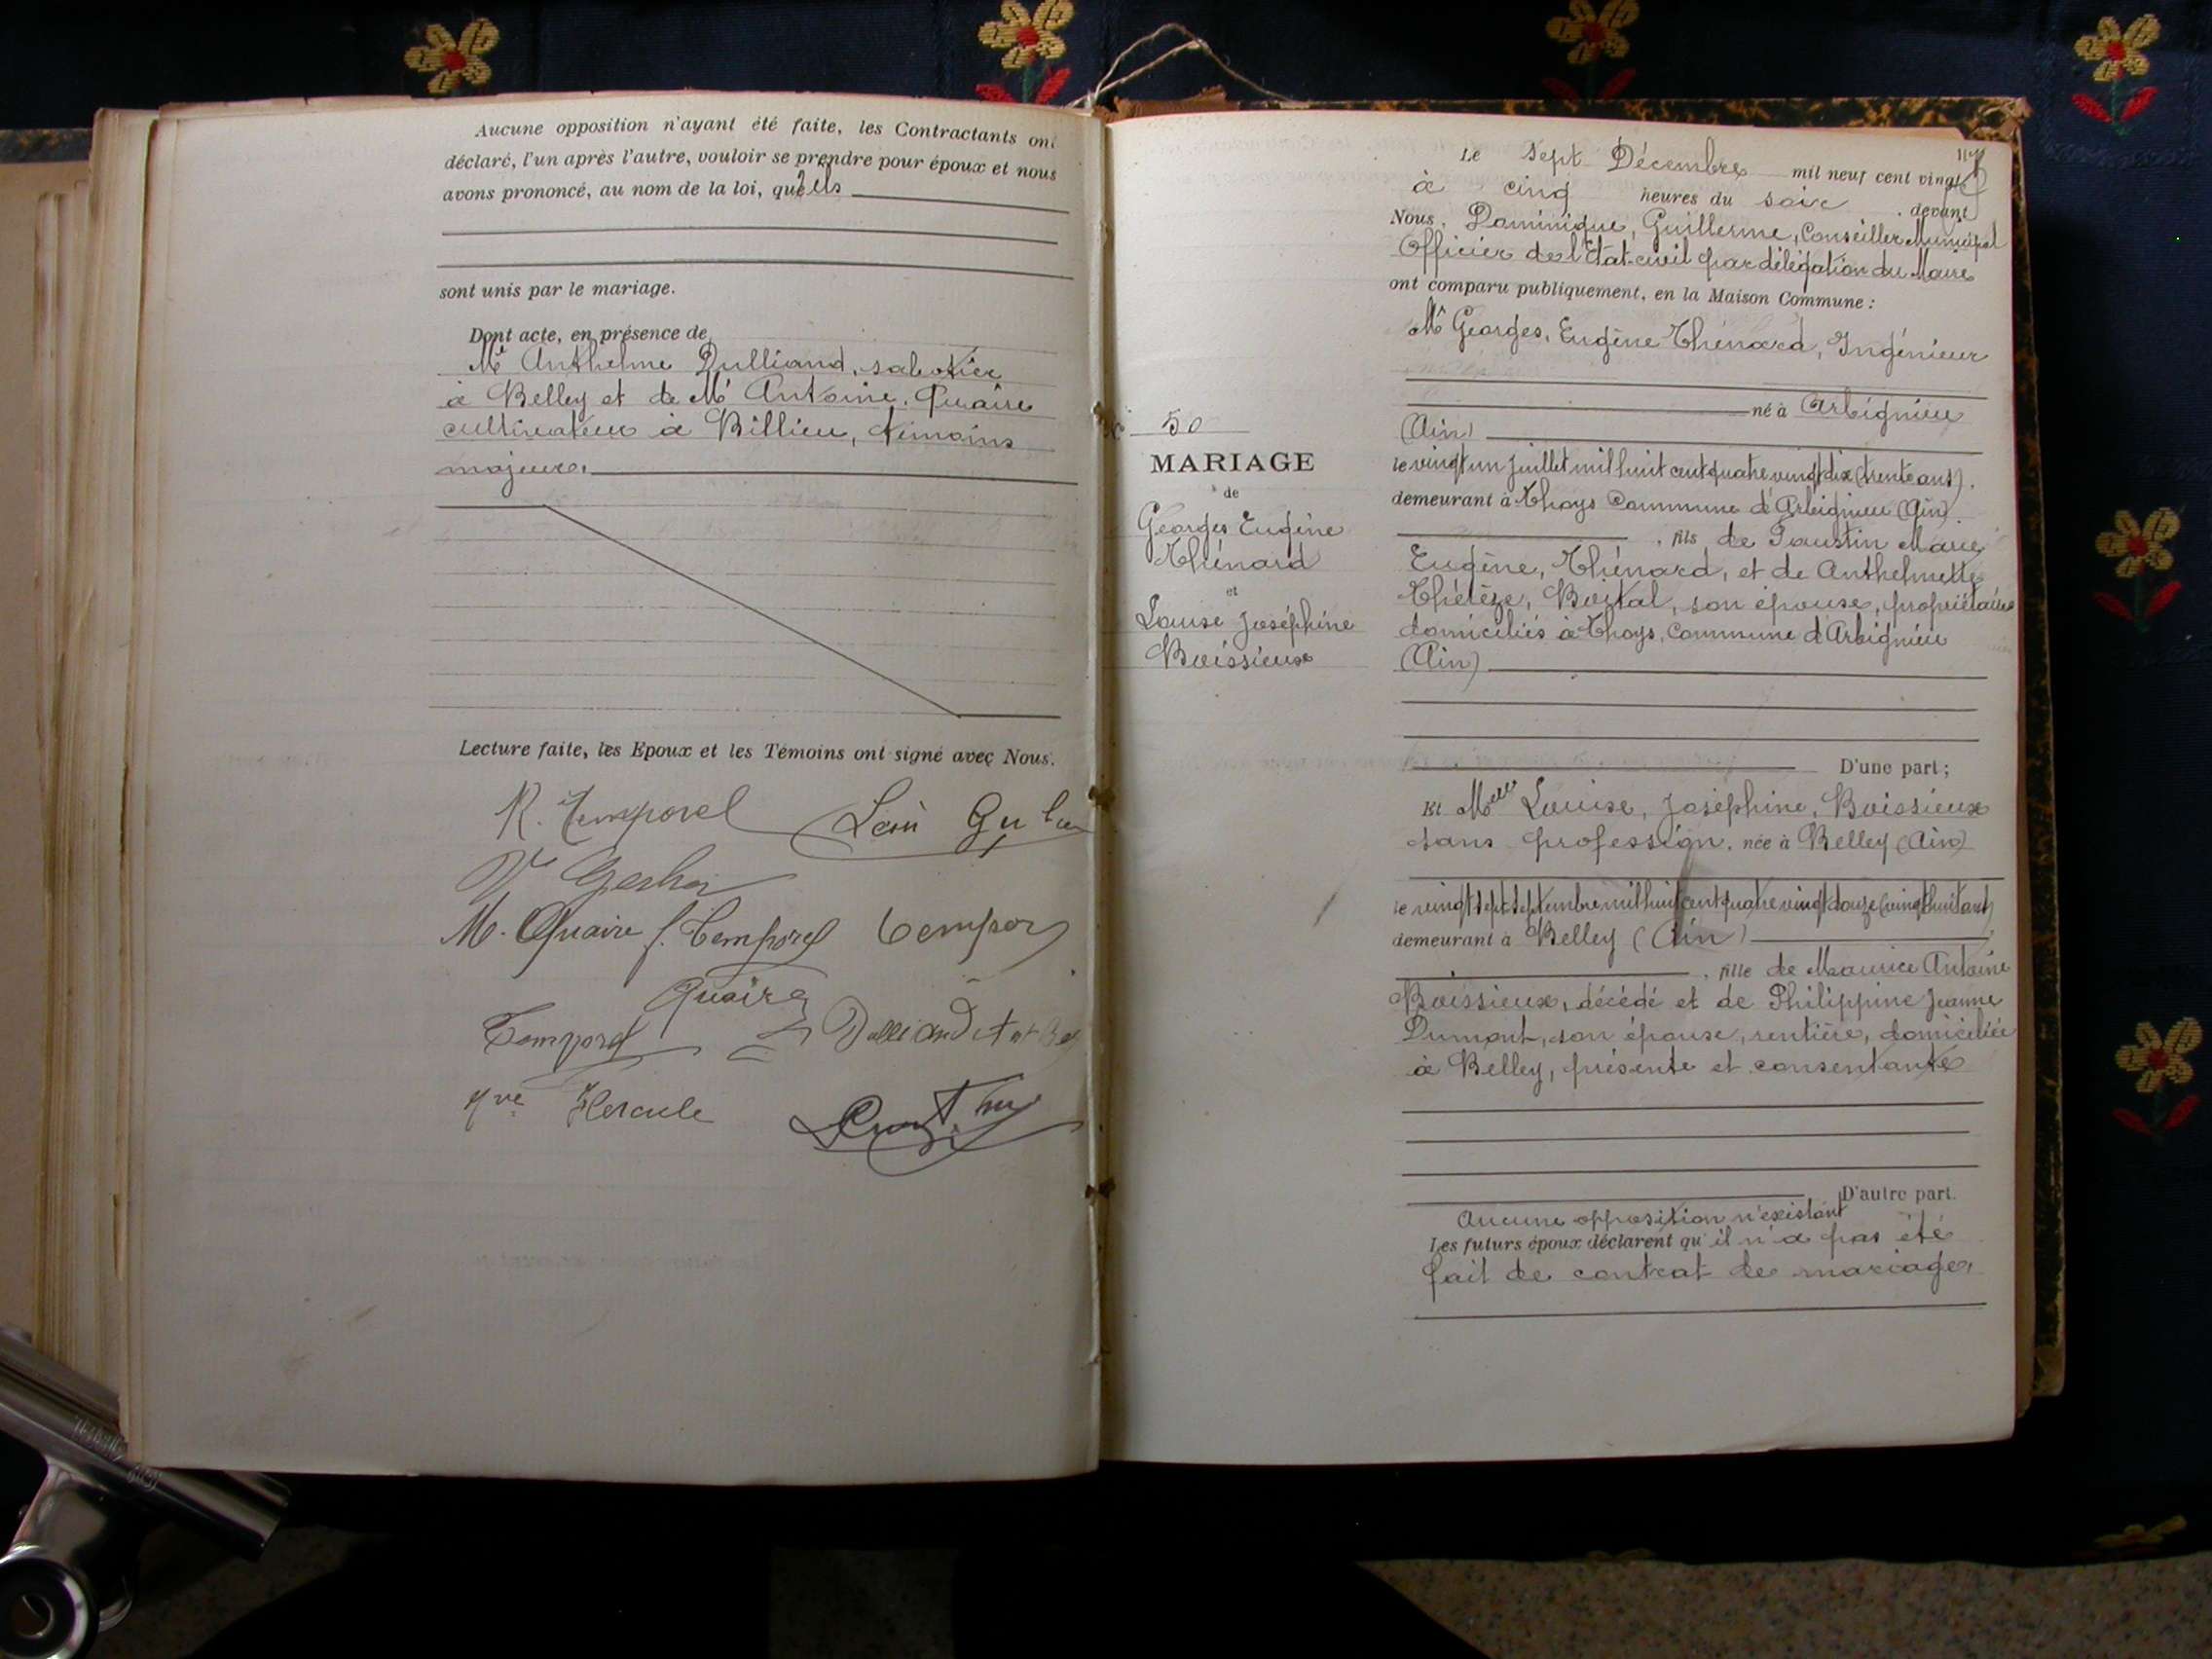 Aucune opposition n'ayant été faite, les Contractants ont
déclaré, l'un après l'autre, vouloir se prendre pour époux et nous
avons prononcé, au nom de la loi, qu'ils
sont unis par le mariage.
Dont acte, en présence de
Mr Anthelme Dulliand, sabotier
à Belley et de Mr Antoine, Quaire
cultivateur à Billieu, témoins
majeurs.
Lecture faite, les Epoux et les Témoins ont signé avec Nous.
R. Temporel Léon
Vve
M. Quaire f. Temporel
Quaire
Temporel Dulliand
Hercule
Le sept Décembre mil neuf cent vingt
à cinq heures du soir, devant
Nous, Dominique, Guillerme, Conseiller Municipal
Officier de l'Etat-civil par délégation du Maire
ont comparu publiquement, en la Maison Commune :
Mr Georges, Eugène Thénard, Ingénieur
né à Arbignieu
(Ain)
le vingt un juillet mil huit cent quatre vingt dix (trente ans).
demeurant à Thoys Commune d'Arbignieu (Ain).
, fils de Faustin Marie
Eugène, Thénard, et de Anthelmette
Thérèze, Boital, son épouse, propriétaires
domiciliés à Thoys, Commune d'Arbignieu
(Ain)
D'une part ;
50
MARIAGE
de
Georges Eugène
Thénard
et
Louise Joséphine
Boissieux
Et Melle Louise, Joséphine, Boissieux
sans profession, née à Belley (Ain)
le vingt sept septembre mil huit cent quatre vingt douze (vingt huit ans)
demeurant à Belley (Ain)
, fille de Maurice Antoine
Boissieux, décédé et de Philippine Jeanne
Dumont, son épouse, rentière, domiciliée
à Belley, présente et consentante
D'autre part.
Aucune opposition n'existant
Les futurs époux déclarent qu'il n'a pas été
fait de contrat de mariage.